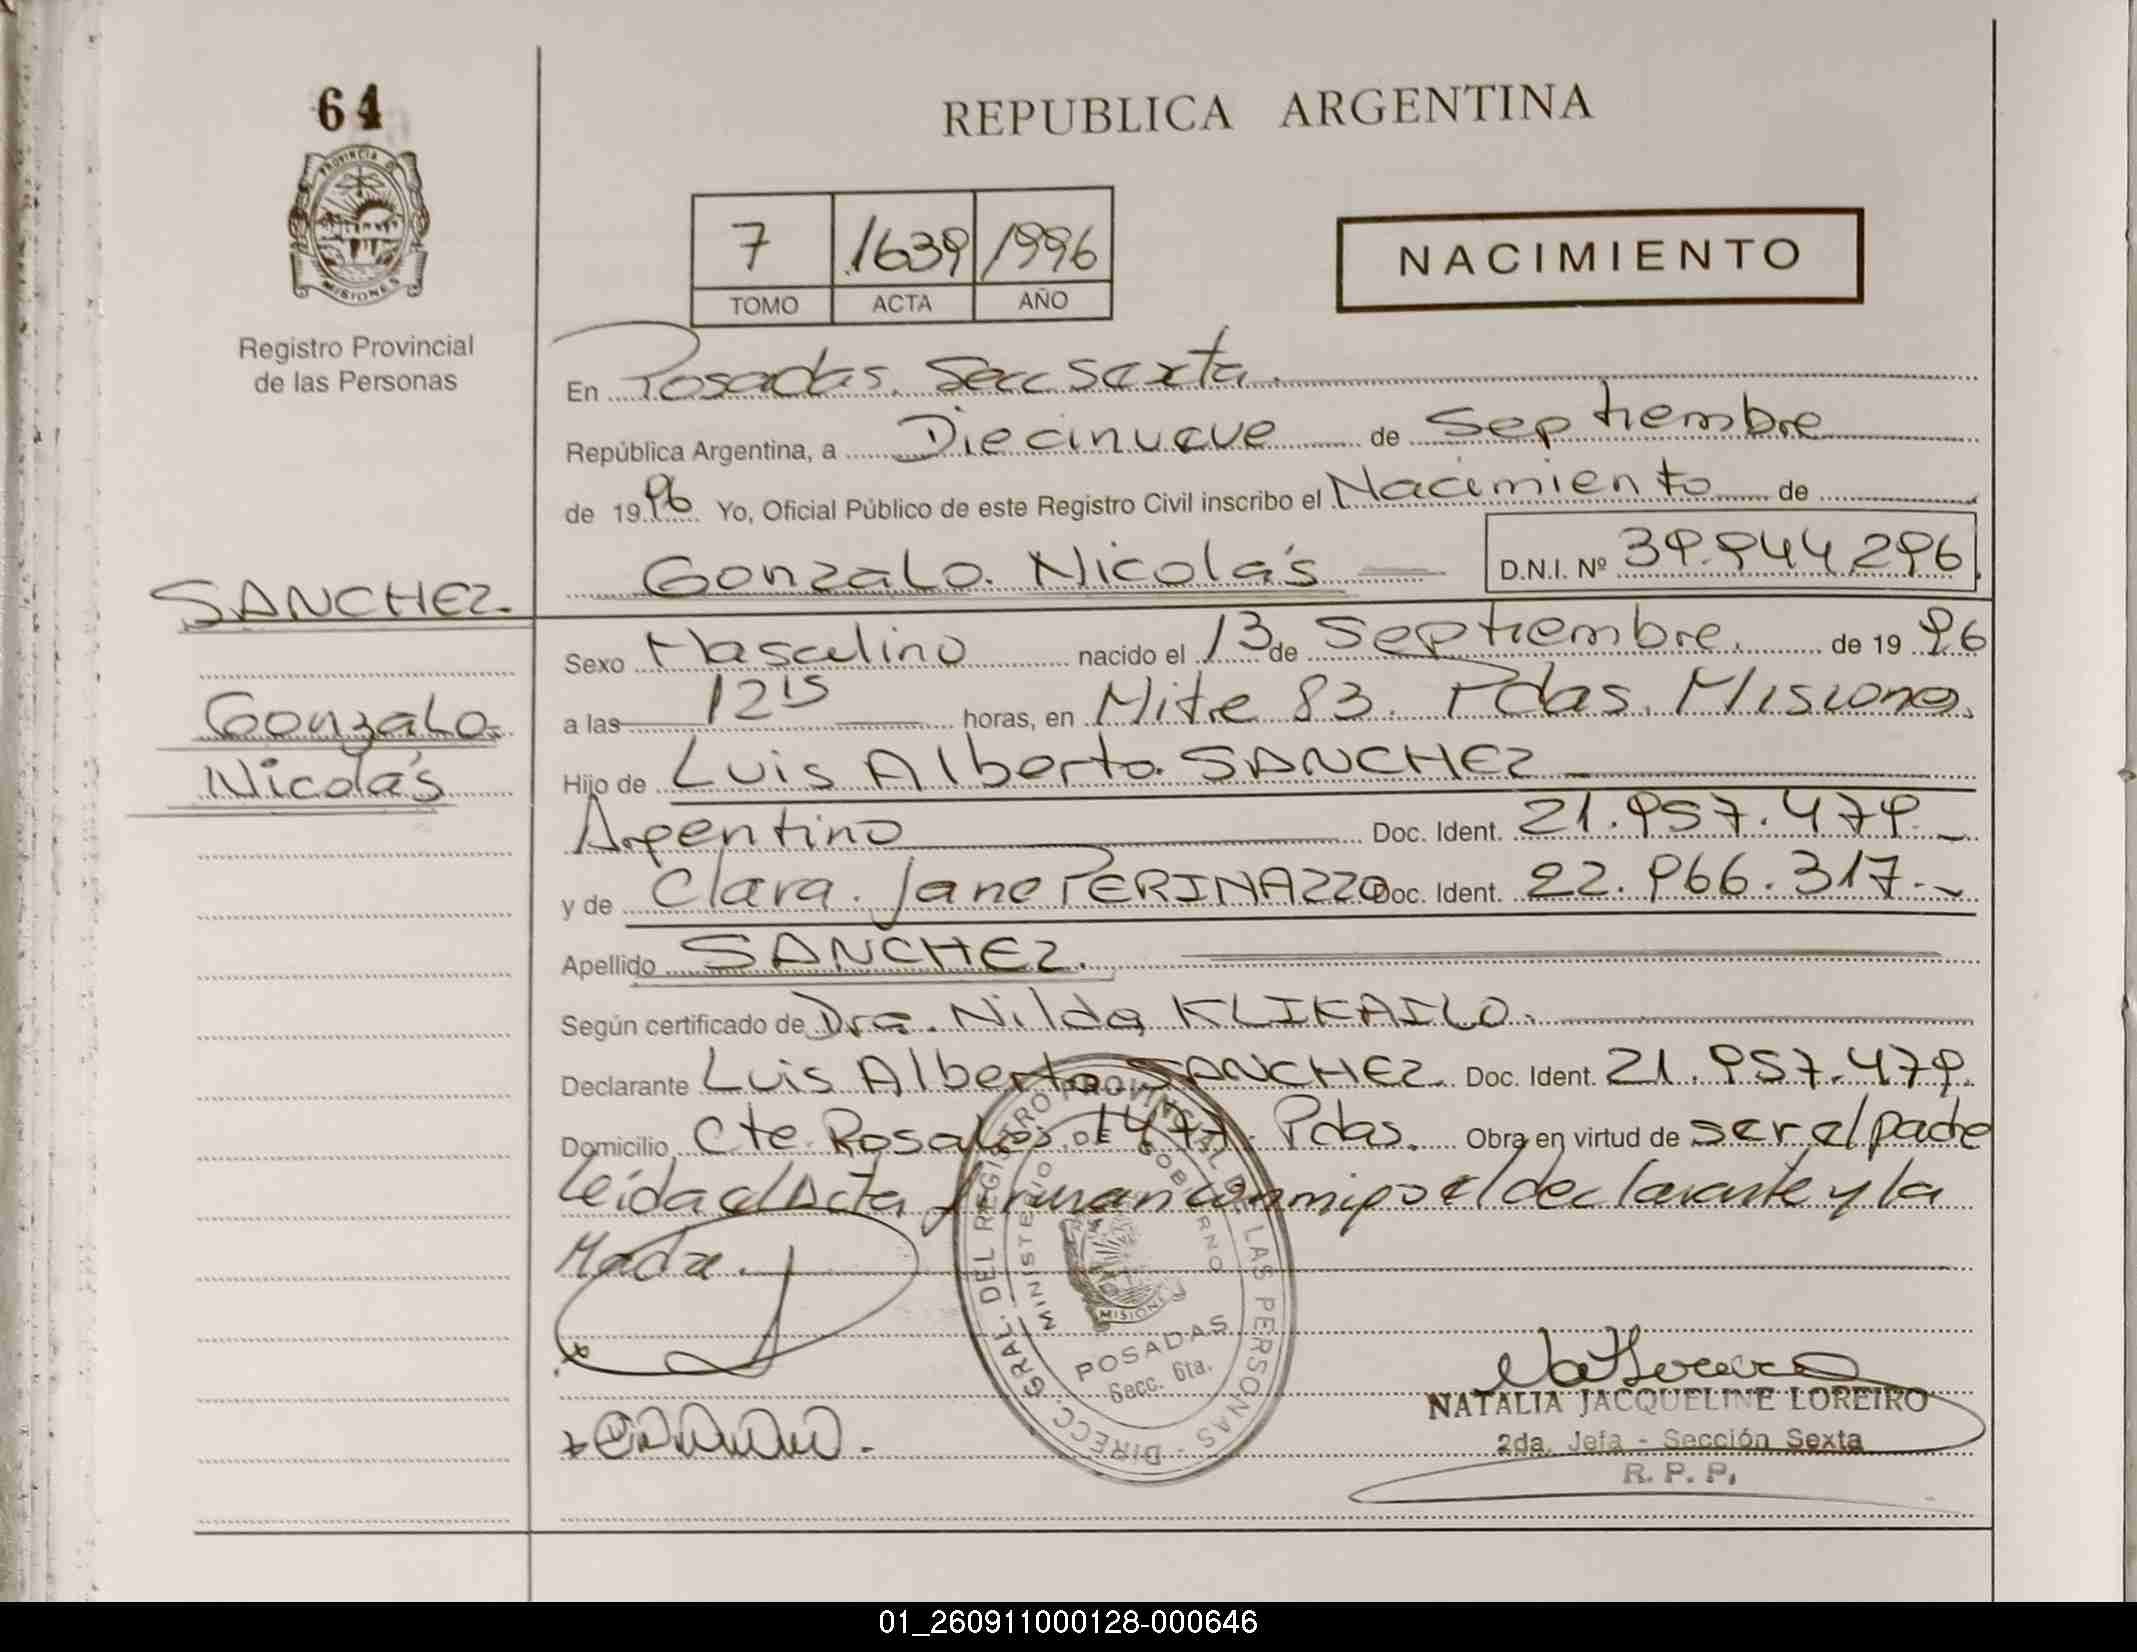 64
REPUBLICA ARGENTINA
PROVINCIA DE
MISIONES
7 1639 1996
TOMO ACTA AÑO
NACIMIENTO
Registro Provincial
de las Personas
En Posadas. Secc Sexta.
República Argentina, a Diecinueve de Septiembre
de 1996 Yo, Oficial Público de este Registro Civil inscribo el Nacimiento de
Gonzalo. Nicolás D.N.I. Nº 39.944.296
SANCHEZ.
Gonzalo.
Nicolás
Sexo Masculino nacido el 13 de Septiembre. de 1996
a las 12 15 horas, en Mitre 83. Pdas. Misiones.
Hijo de Luis Alberto. SANCHEZ
Argentino Doc. Ident. 21.957.479.
y de Clara. Jane PERINAZZO Doc. Ident. 22.966.317.
Apellido SANCHEZ.
Según certificado de Dra. Nilda KLIKAILO.
Declarante Luis Alberto SANCHEZ. Doc. Ident. 21.957.479.
Domicilio Cte. Rosales 1477. Pdas. Obra en virtud de ser el padre
Leída el Acta firman conmigo el declarante y la
Madre.
DIRECC. GRAL. DEL REGISTRO PROVINCIAL DE LAS PERSONAS
MINISTERIO DE GOBIERNO
MISIONES
POSADAS
Secc. 6ta.
NATALIA JACQUELINE LOREIRO
2da. Jefa - Sección Sexta
R. P. P.
01_260911000128-000646